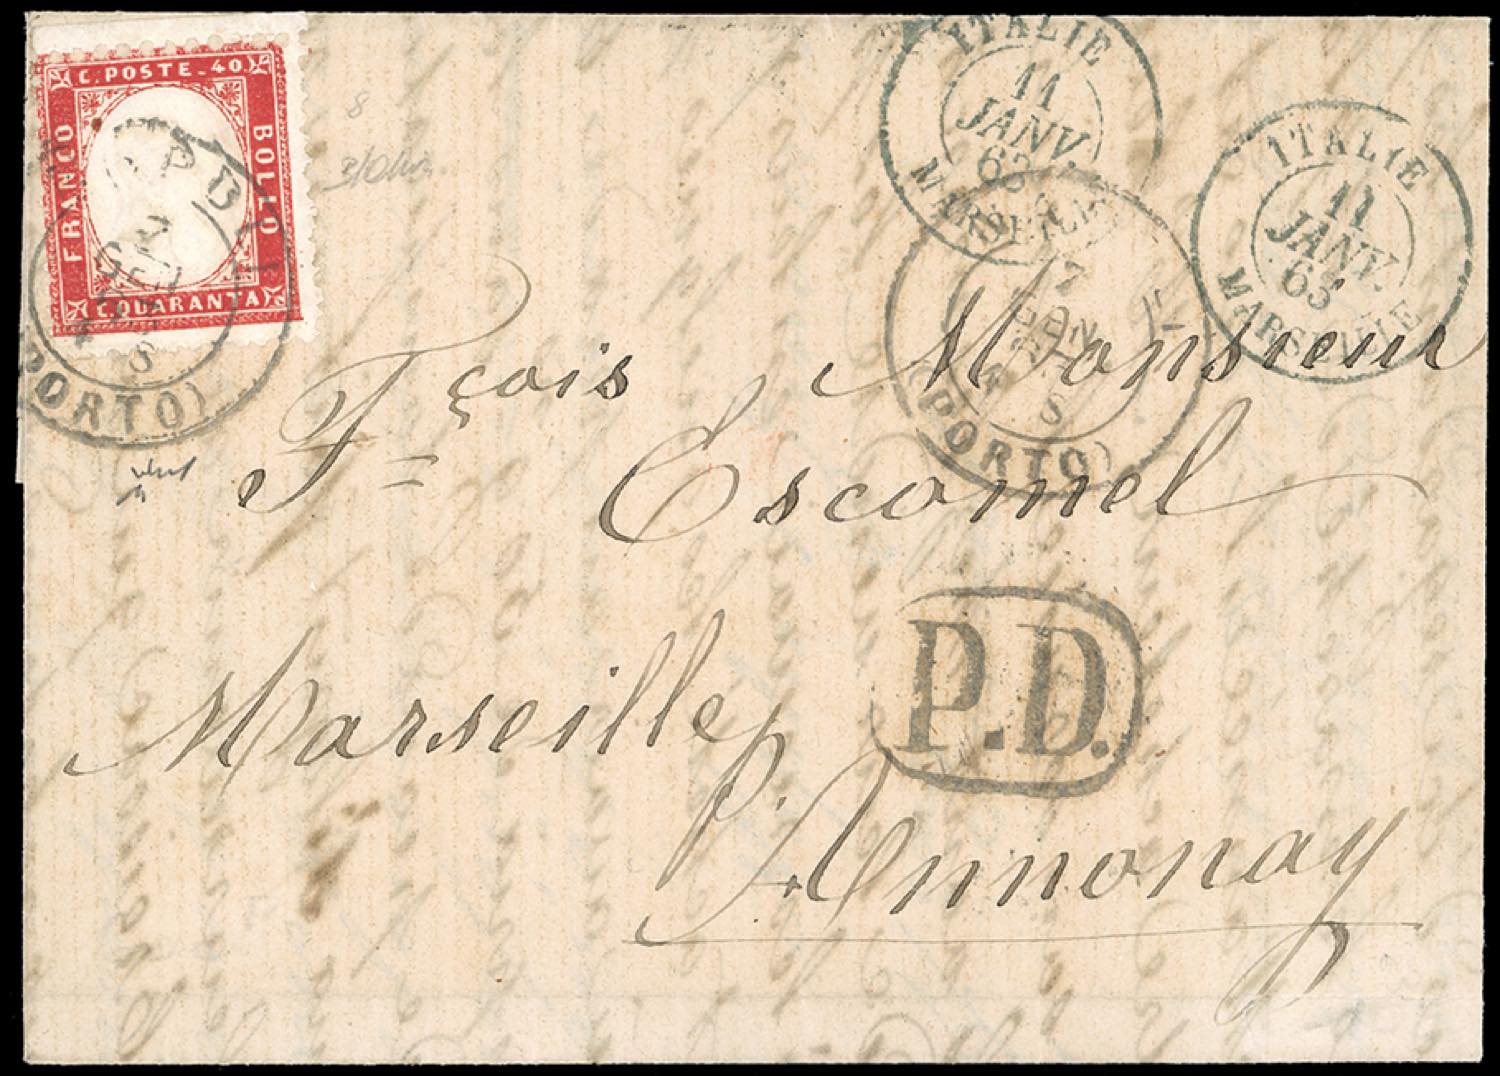 C. POSTE. 40.
FRANCO
BOLLO
C. QUARANTA
(PORTO)
8
ITALIE
11
JANV.
63
MARSEILLE
ITALIE
11
JANV.
63
MARSEILLE
7
GEN
S
(PORTO)
Monsieur
Fçois Escomel
P.D.
Marseille,
p. Annonay